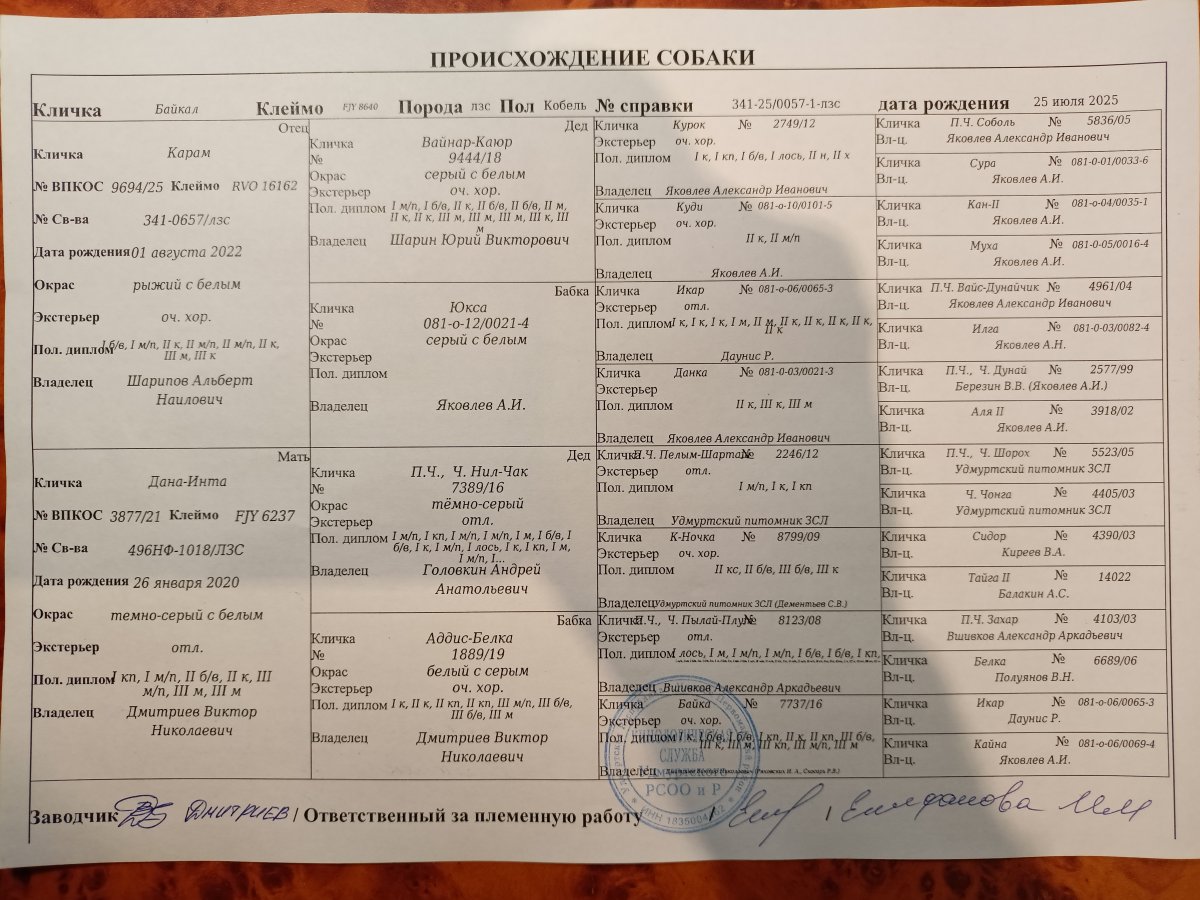 ПРОИСХОЖДЕНИЕ СОБАКИ
Кличка Байкал Клеймо FJY 8640 Порода лзс Пол Кобель № справки 341-25/0057-1-лзс дата рождения 25 июля 2025
Отец
Кличка Карам
№ ВПКОС 9694/25 Клеймо RVO 16162
№ Св-ва 341-0657/лзс
Дата рождения 01 августа 2022
Окрас рыжий с белым
Экстерьер оч. хор.
Пол. диплом I б/в, I м/п, II к, II м/п, II м/п, II к,
III м, III к
Владелец Шарипов Альберт
Наилович
Мать
Кличка Дана-Инта
№ ВПКОС 3877/21 Клеймо FJY 6237
№ Св-ва 496НФ-1018/ЛЗС
Дата рождения 26 января 2020
Окрас темно-серый с белым
Экстерьер отл.
Пол. диплом I кп, I м/п, II б/в, II к, III
м/п, III м, III м
Владелец Дмитриев Виктор
Николаевич
Дед
Кличка Вайнар-Каюр
№ 9444/18
Окрас серый с белым
Экстерьер оч. хор.
Пол. диплом I м/п, I б/в, II к, II б/в, II б/в, II м,
II к, II к, III м, III м, III м, III к, III
м
Владелец Шарин Юрий Викторович
Бабка
Кличка Юкса
№ 081-о-12/0021-4
Окрас серый с белым
Экстерьер
Пол. диплом
Владелец Яковлев А.И.
Дед
Кличка П.Ч., Ч. Нил-Чак
№ 7389/16
Окрас тёмно-серый
Экстерьер отл.
Пол. диплом I м/п, I кп, I м/п, I м/п, I м, I б/в, I
б/в, I к, I м/п, I лось, I к, I кп, I м,
I м/п, I...
Владелец Головкин Андрей
Анатольевич
Бабка
Кличка Аддис-Белка
№ 1889/19
Окрас белый с серым
Экстерьер оч. хор.
Пол. диплом I к, II к, II кп, II кп, III м/п, III б/в,
III б/в, III м
Владелец Дмитриев Виктор
Николаевич
Кличка Курок № 2749/12
Экстерьер оч. хор.
Пол. диплом I к, I кп, I б/в, I лось, II н, II х
Владелец Яковлев Александр Иванович
Кличка Куди № 081-о-10/0101-5
Экстерьер оч. хор.
Пол. диплом II к, II м/п
Владелец Яковлев А.И.
Кличка Икар № 081-о-06/0065-3
Экстерьер отл.
Пол. диплом I к, I к, I к, I м, II м, II к, II к, II к, II к,
II к
Владелец Даунис Р.
Кличка Данка № 081-0-03/0021-3
Экстерьер
Пол. диплом II к, III к, III м
Владелец Яковлев Александр Иванович
Кличка П.Ч. Пелым-Шартан № 2246/12
Экстерьер отл.
Пол. диплом I м/п, I к, I кп
Владелец Удмуртский питомник ЗСЛ
Кличка К-Ночка № 8799/09
Экстерьер оч. хор.
Пол. диплом II кс, II б/в, III б/в, III к
Владелец Удмуртский питомник ЗСЛ (Дементьев С.В.)
Кличка П.Ч., Ч. Пылай-Плун № 8123/08
Экстерьер отл.
Пол. диплом I лось, I м, I м/п, I м/п, I б/в, I б/в, I кп,
Владелец Вшивков Александр Аркадьевич
Кличка Байка № 7737/16
Экстерьер оч. хор.
Пол. диплом I к, I б/в, I б/в, I кп, II к, II кп, III б/в,
III к, III м, III кп, III м/п, III м
Владелец
Кличка П.Ч. Соболь № 5836/05
Вл-ц. Яковлев Александр Иванович
Кличка Сура № 081-0-01/0033-6
Вл-ц. Яковлев А.И.
Кличка Кан-II № 081-о-04/0035-1
Вл-ц. Яковлев А.И.
Кличка Муха № 081-0-05/0016-4
Вл-ц. Яковлев А.И.
Кличка П.Ч. Вайс-Дунайчик № 4961/04
Вл-ц. Яковлев Александр Иванович
Кличка Илга № 081-0-03/0082-4
Вл-ц. Яковлев А.Н.
Кличка П.Ч., Ч. Дунай № 2577/99
Вл-ц. Березин В.В. (Яковлев А.И.)
Кличка Аля II № 3918/02
Вл-ц. Яковлев А.И.
Кличка П.Ч., Ч. Шорох № 5523/05
Вл-ц. Удмуртский питомник ЗСЛ
Кличка Ч. Чонга № 4405/03
Вл-ц. Удмуртский питомник ЗСЛ
Кличка Сидор № 4390/03
Вл-ц. Киреев В.А.
Кличка Тайга II № 14022
Вл-ц. Балакин А.С.
Кличка П.Ч. Захар № 4103/03
Вл-ц. Вшивков Александр Аркадьевич
Кличка Белка № 6689/06
Вл-ц. Полуянов В.Н.
Кличка Икар № 081-о-06/0065-3
Вл-ц. Даунис Р.
Кличка Кайна № 081-о-06/0069-4
Вл-ц. Яковлев А.И.
КИНОЛОГИЧЕСКАЯ
СЛУЖБА
РСОО и Р
Заводчик Дмитриев / Ответственный за племенную работу / /